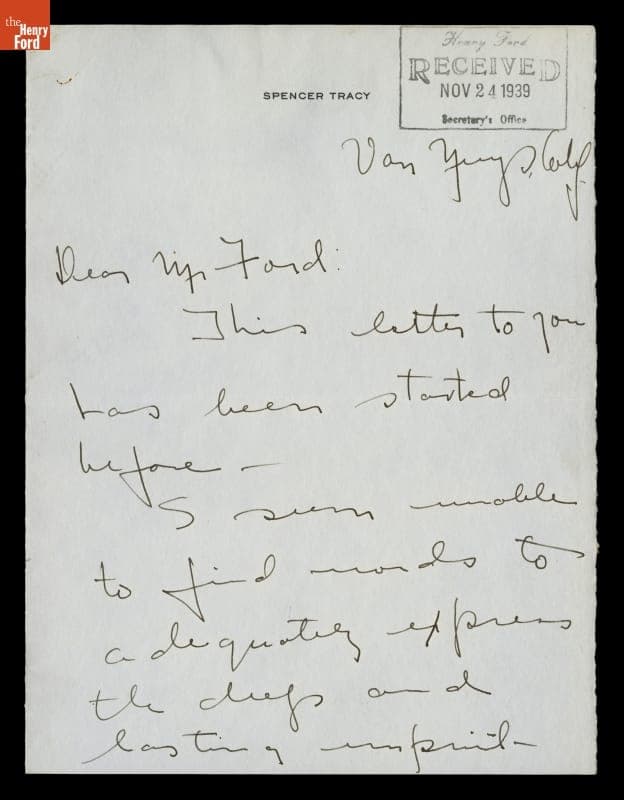 the
Henry
Ford
Henry Ford
RECEIVED
NOV 24 1939
Secretary's Office
SPENCER TRACY
Van Nuys, Calif.
Dear Mr Ford:
This letter to you
has been started
before –
I seem unable
to find words to
adequately express
the deep and
lasting imprint